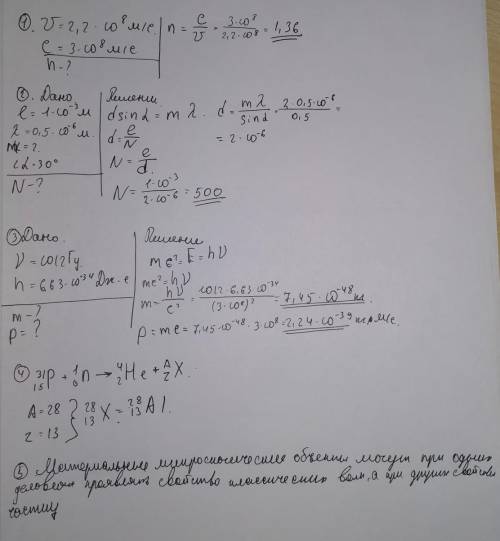 ① V = 2,2 · 10⁸ м/с
c = 3 · 10⁸ м/с
n - ?
n = c/v = 3·10⁸ / 2,2·10⁸ = 1,36
② Дано
l = 1·10⁻³ м
λ = 0,5·10⁻⁶ м.
m = 2.
α = 30°
N - ?
Решение
d sin α = m λ. d = mλ / sin α = 2·0,5·10⁻⁶ / 0,5 =
= 2·10⁻⁶
d = l/N
N = l/d.
N = 1·10⁻³ / 2·10⁻⁶ = 500
③ Дано.
ν = 10¹² Гц
h = 6,63·10⁻³⁴ Дж·с
m - ?
p = ?
Решение
mc² = E = hν
mc² = hν
m = hν / c² = 10¹²·6,63·10⁻³⁴ / (3·10⁸)² = 7,45·10⁻⁴⁸ кг.
p = mc = 7,45·10⁻⁴⁸ · 3·10⁸ = 2,24·10⁻³⁹ кг·м/с.
④ ³¹₁₅P + ¹₀n → ⁴₂He + ᴬ_Z X.
A = 28
z = 13
} ²⁸₁₃X = ²⁸₁₃Al.
⑤ Материальные микроскопические объекты могут при одних
условиях проявлять свойство классических волн, а при других свойства
частиц